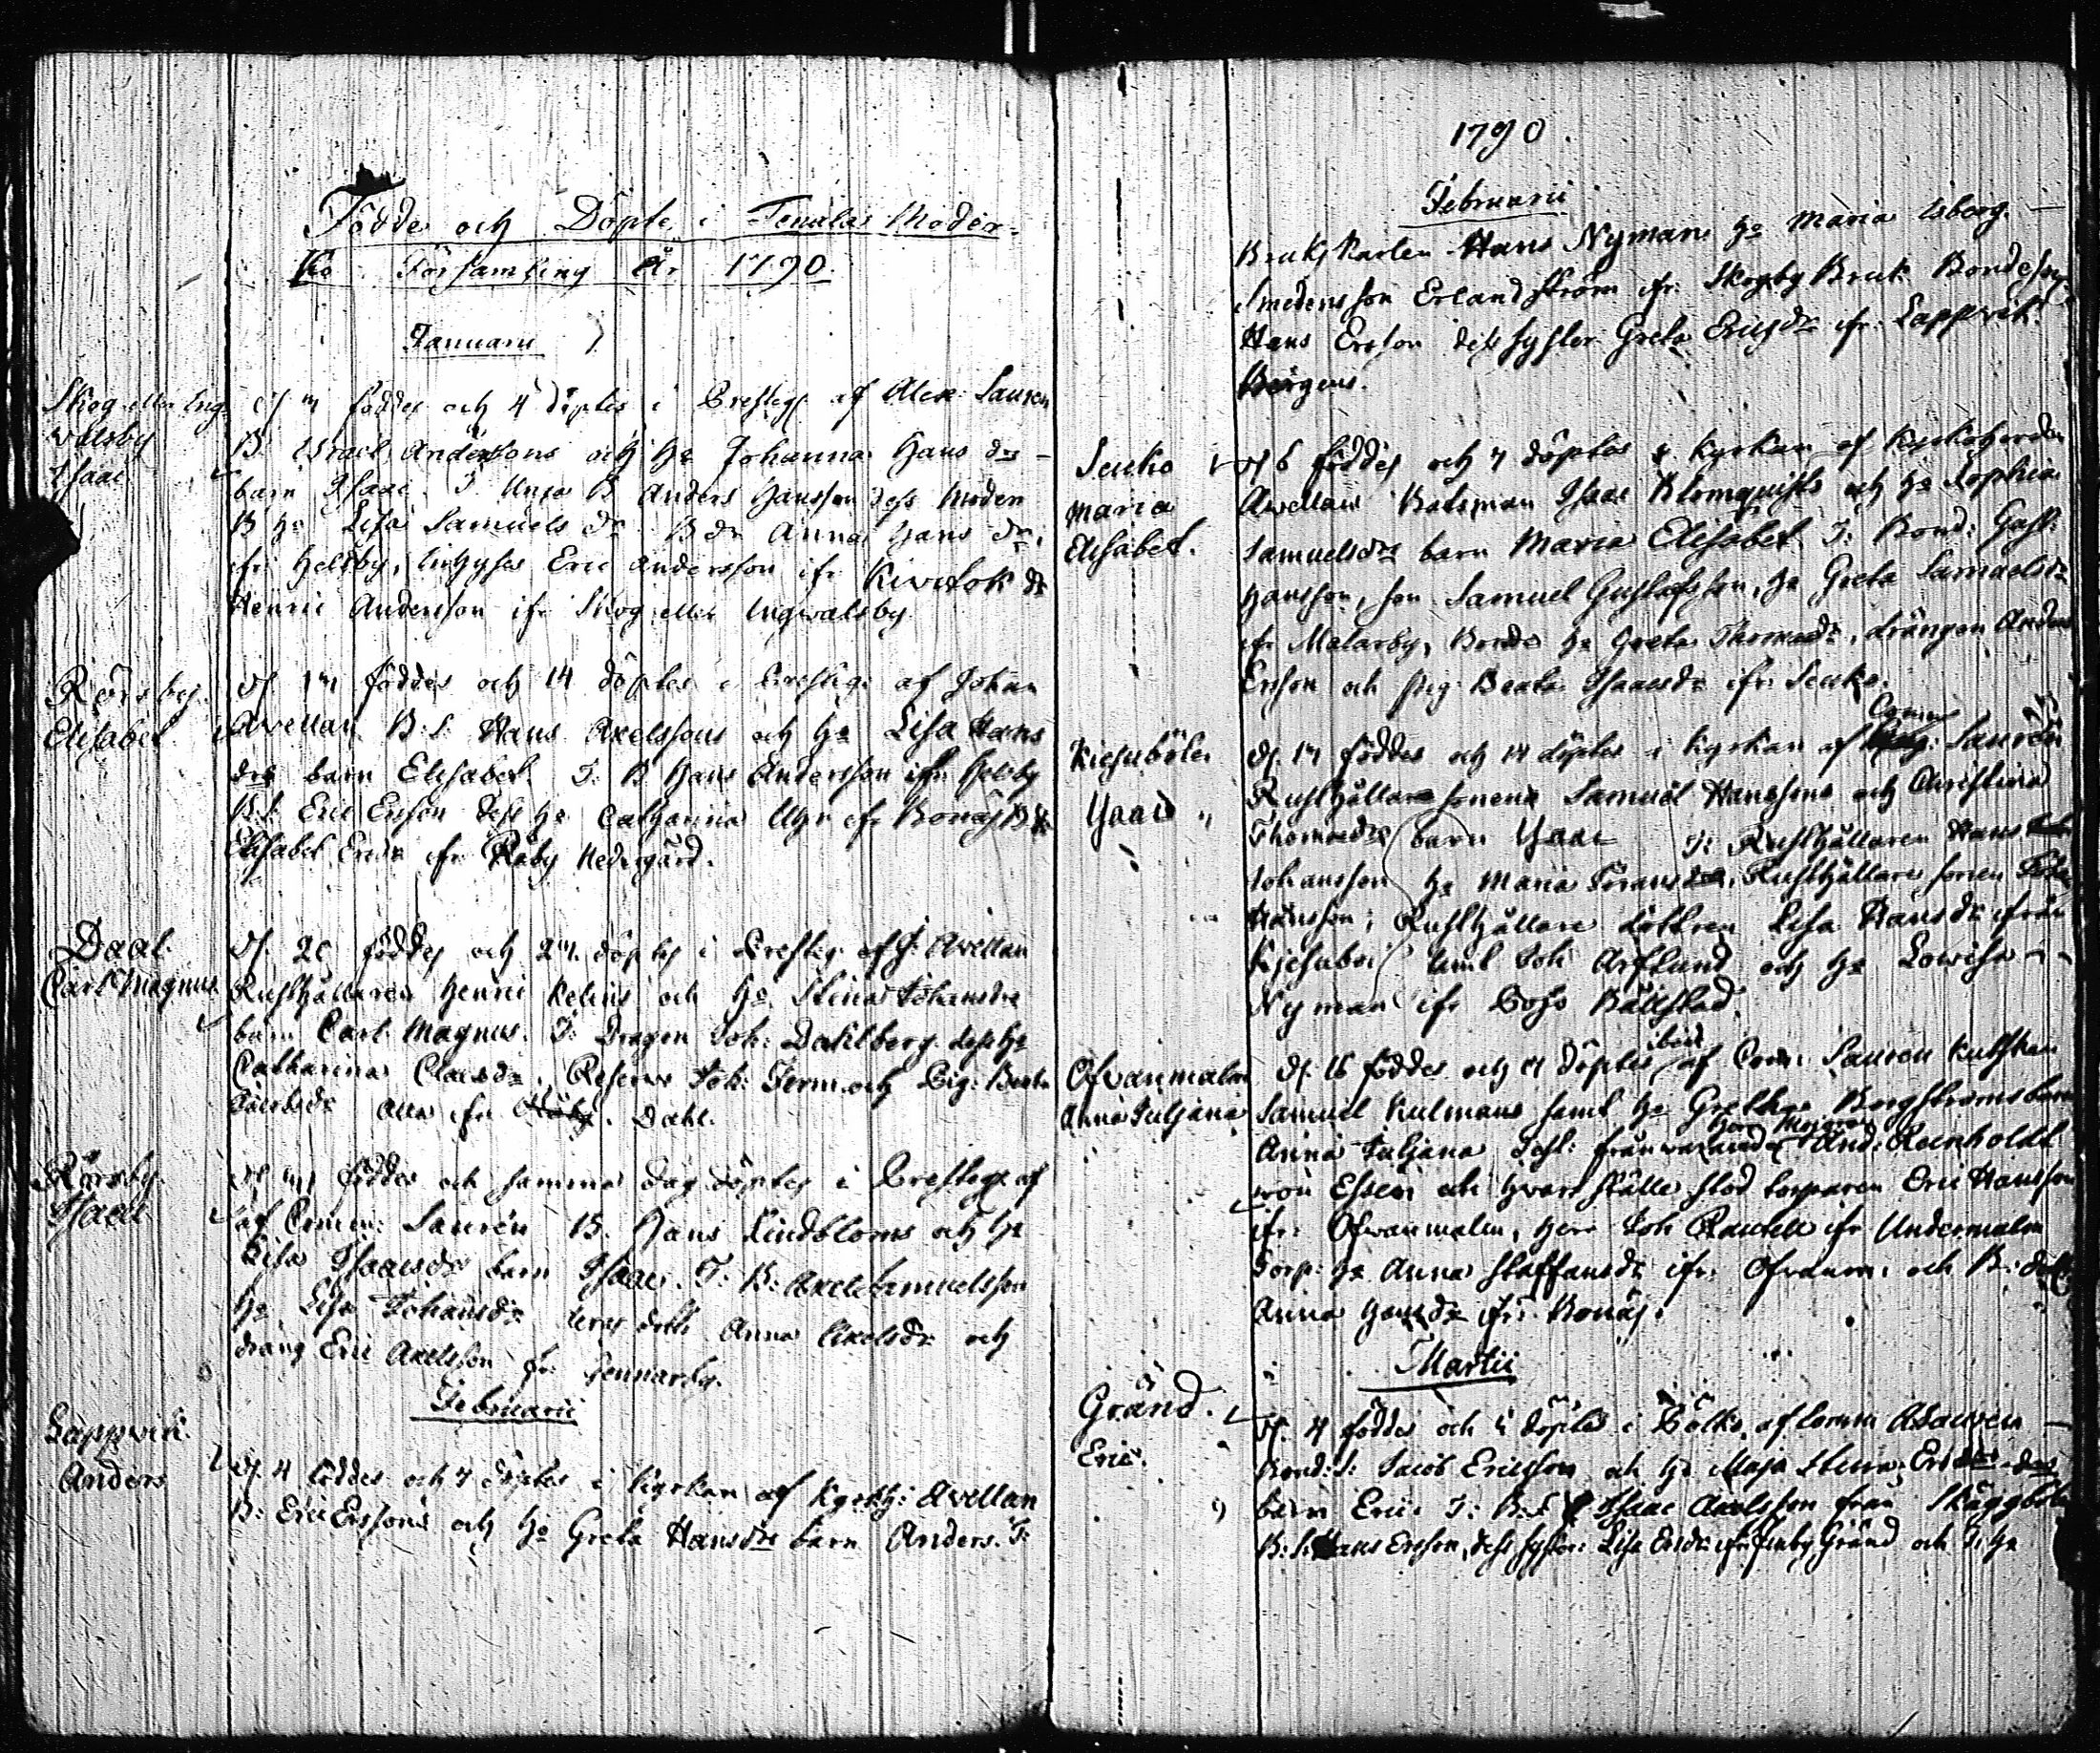 Födde och Döpte i Tenala Moder
Församling År 1790.
Januarii
Skog eller Ing
walsby
Isaac
föddes och 4 döptes i Prestg. af Alex: Lauren
B Israel Anderssons och H. Johanna Hans dr
barn Isaac. T. Unga B Anders Hansson dess Moder
B h: Lisa Samuels dr B dr Anna Hans dr.
ifr Hellby, Eric Andersson ifr
Henric Andersson ifr Skog eller Ingwalsby
Rörsby
Elisabet
föddes och 14 döptes i Prestg. af Johan
Avellan B. S. Hans Axelssons och h: Lisa Hans
drs barn Elisabet. T: B Hans Andersson ifr Helsby
B.S. Eric Ersson dess h: Catharina ifr Bonäs B dr
Elisabet Ersdr ifr Råby Nedergård.
Daal
Carl Magnus
föddes och döptes i Prestg. af J. Avellan
Rusthållaren Henric och h: Stina Johansdrs
barn Carl Magnus. T: Dragon Joh: Dahlberg dess h:
Catharina Claesdr, Reserve Joh: Ferm och Pig: Beata
alla ifr Dahl.
Rörsby
Isaac
föddes och samma dag döptes i Prestg. af
af Comm: Laurén B. Hans Lindbloms och h:
Lisa Isaacsdrs barn Isaac. T: B: Axel Samuelsson
h: Lisa Johansdr deras dotter Anna Axelsdr och
dräng Eric Axelsson fr: Gennarby.
Februarii
Lappvik
Anders
D. 4 föddes och 7 döptes i Kyrkan af Kyrkh: Avellan
B: Eric Erssons och h: Greta Hansdrs barn Anders. T:
1790
Februarii
Bruks Karlen Hans Nyman h: Maria Isberg.
Smedens son Erland Ström ifr: Skogby Bruk Bondeson
Hans Ersson dess syster Greta Ericsdr ifr: Lappvik
Lenko
Maria
Elisabet.
D 6 föddes och 7 döptes i Kyrkan af Kyrkoherden
Awellan Batsman Isaac Blomquists och h: Sophia
Samuelsdrs barn Maria Elisabet. T: Bond: Gust:
Hansson, son Samuel Gustafsson, h: Greta Samuelsdr
ifr Malarby, Bonde h: Greta Thomasdr, drängen Anders
Ersson och pig: Beata Isaacsdr ifr: Lenko.
Kiesuböle
Isaac
D. 14 föddes och 14 döptes i Kyrkan af Comm: Laurén
Rusthållare sonens Samuel Hanssons och Christina
Thomasdrs barn Isaac T: Rusthållaren Hans
Johansson h: Maria dr, Rusthållare sonen
Hansson, Rusthållare dottren Lisa Hansdr ifrån
Kjesuböl samt Joh Arflund och h: Lowisa
Nyman ifr Bojo
Ofvanmalm
Anna Juljana
D. 16 föddes och 17 döptes ibid af Com: Lauren Kusken
Samuel Kulmans samt h: Grethas Bergströms barn
Anna Juljana Test: frånvarande Herr Majoren And: Reinholdt
von Essen och i hvars ställe stod torparen Eric Hansson
ifr: Ofvanmalm, Herr Joh ifr Undermalm
Torp: h: Anna Staffansdr ifr: Ofvanm: och B: dott:
Anna Hansdr ifr: Bonäs.
Martii
Gränd.
Eric.
D. 4 föddes och 5 döptes i af Comm A Lauren
Bond: S: Jacob Ericsson och h: Maja Stina Ers drs
barn Eric. T: B:S Isaac Axelsson från Skäggböle
B: S: Hans Ersson, dess syster: Lisa Ersdr ifr Gränd och T: h: